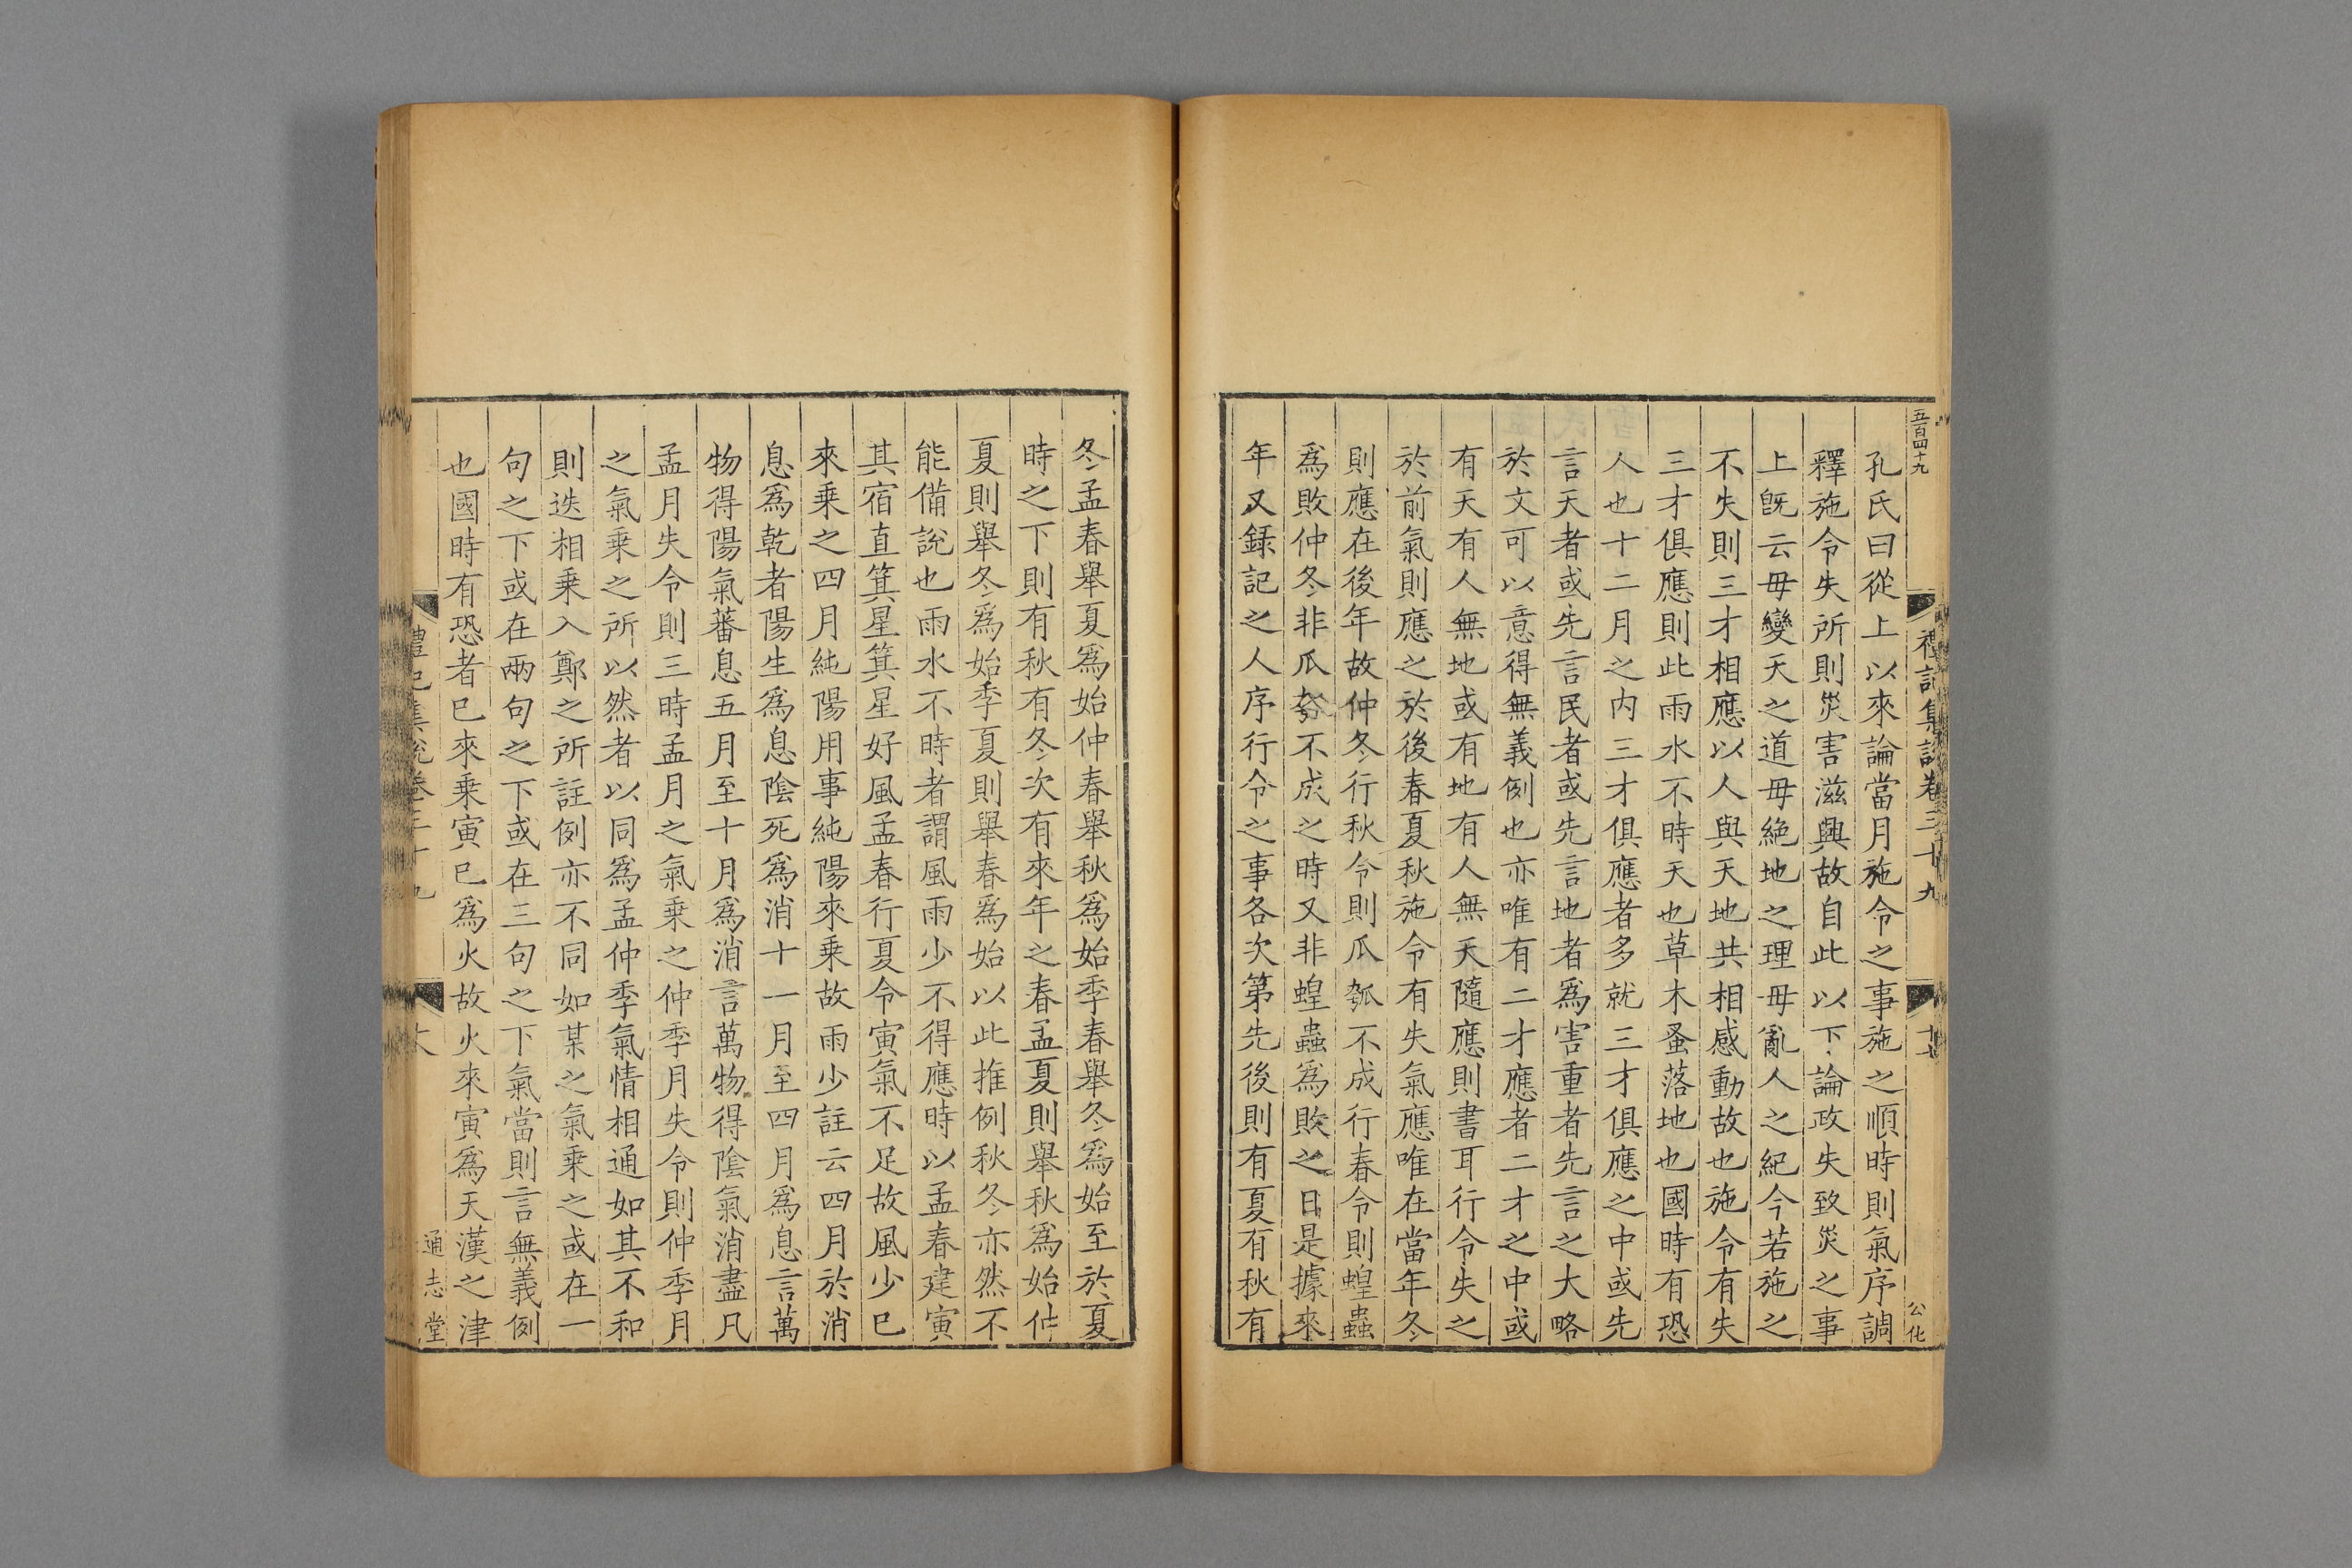 五百四十九
禮記集說卷三十九
十七
公化
孔氏曰從上以來論當月施令之事施之順時則氣序調
釋施令失所則災害滋興故自此以下論政失致災之事
上旣云毋變天之道毋絕地之理毋亂人之紀今若施之
不失則三才相應以人與天地共相感動故也施令有失
三才俱應則此雨水不時天也草木蚤落地也國時有恐
人也十二月之內三才俱應者多就三才俱應之中或先
言天者或先言民者或先言地者爲害重者先言之大略
於文可以意得無義例也亦唯有二才應者二才之中或
有天有人無地或有地有人無天隨應則書耳行令失之
於前氣則應之於後春夏秋施令有失氣應唯在當年冬
則應在後年故仲冬行秋令則瓜瓠不成行春令則蝗蟲
爲敗仲冬非瓜瓠不成之時又非蝗蟲爲敗之日是據來
年又錄記之人序行令之事各次第先後則有夏有秋有
冬孟春舉夏爲始仲春舉秋爲始季春舉冬爲始至於夏
時之下則有秋有冬次有來年之春孟夏則舉秋爲始仲
夏則舉冬爲始季夏則舉春爲始以此推例秋冬亦然不
能備說也雨水不時者謂風雨少不得應時以孟春建寅
其宿直箕星箕星好風孟春行夏令寅氣不足故風少巳
來乗之四月純陽用事純陽來乗故雨少註云四月於消
息爲乾者陽生爲息陰死爲消十一月至四月爲息言萬
物得陽氣蕃息五月至十月爲消言萬物得陰氣消盡凡
孟月失令則三時孟月之氣乗之仲季月失令則仲季月
之氣乗之所以然者以同爲孟仲季氣情相通如其不和
則迭相乗入鄭之所註例亦不同如某之氣乗之或在一
句之下或在兩句之下或在三句之下氣當則言無義例
也國時有恐者巳來乗寅巳爲火故火來寅爲天漢之津
禮記集說卷三十九
通志堂